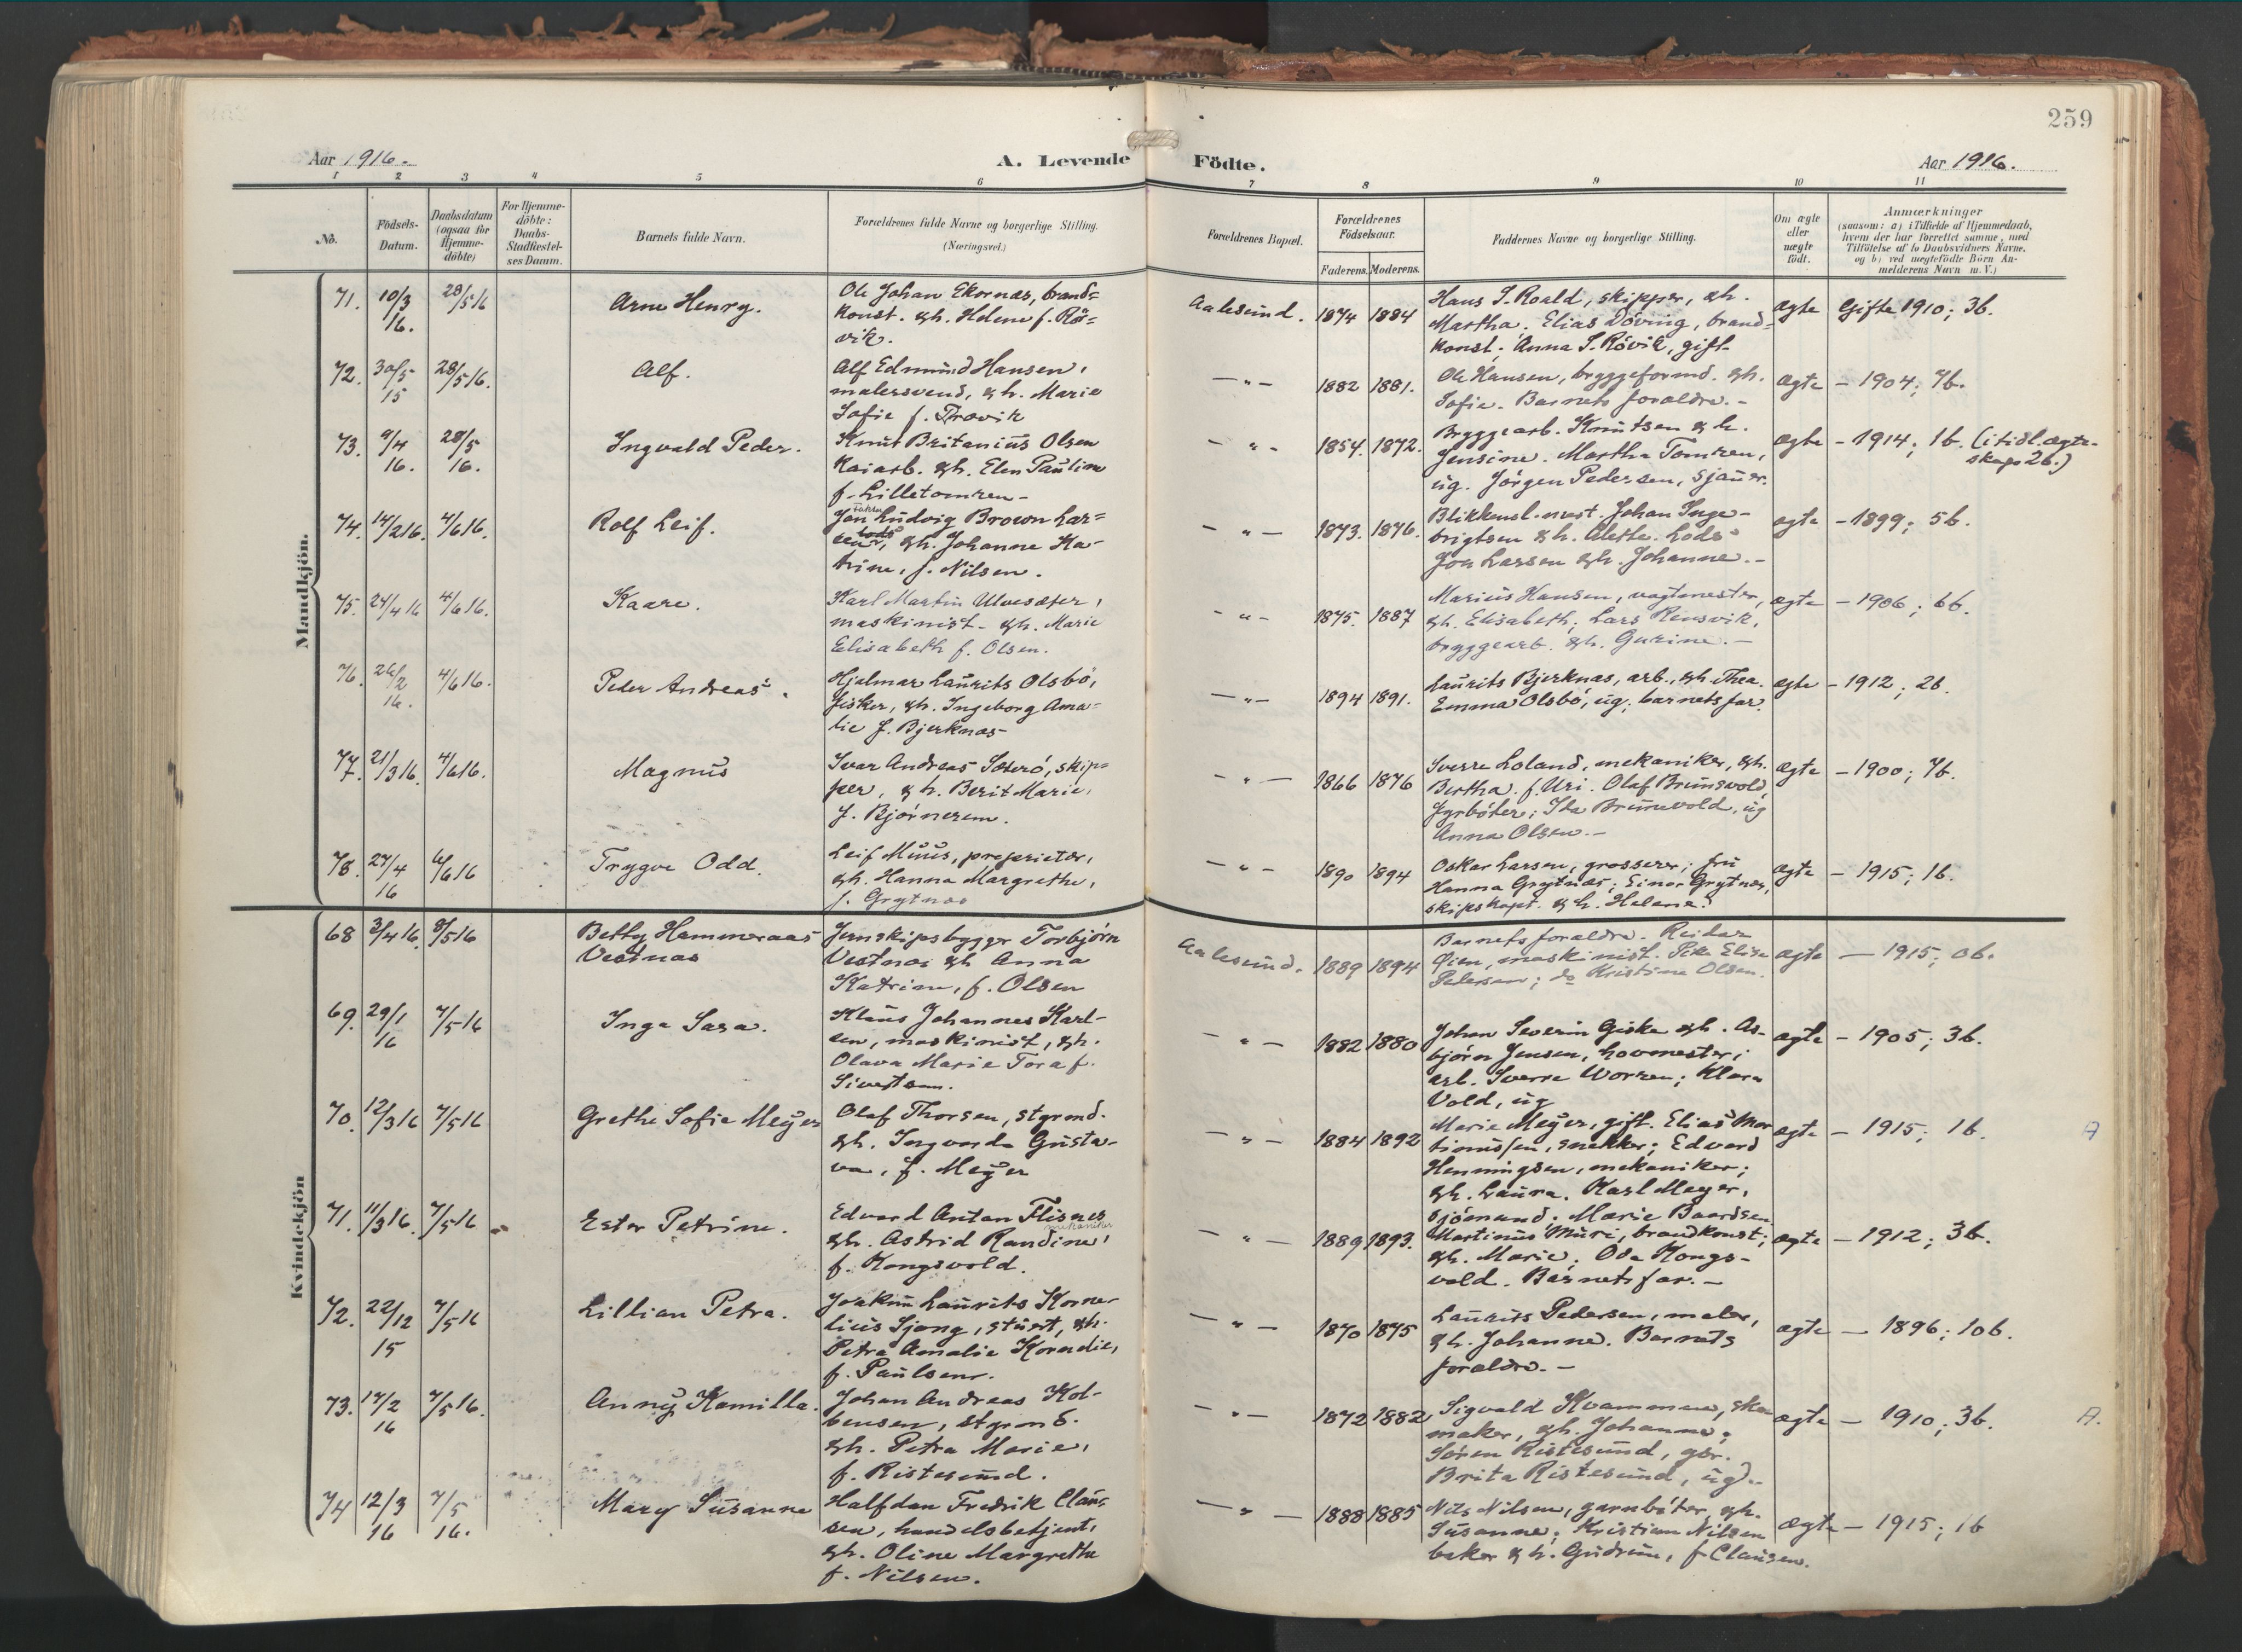 259
Aar 1916.
A. Levende Födte.
Aar 1916.
1 2 3 4 5 6 7 8 9 10 11
No.
Födsels-
Datum.
Daabsdatum
(ogsaa for
Hjemme-
döbte)
For Hjemme-
döbte:
Daabs-
Stadfæstel-
ses Datum.
Barnets fulde Navn.
Forældrenes fulde Navne og borgerlige Stilling.
(Næringsvei.)
Forældrenes Bopæl.
Forældrenes
Födselsaar.
Faderens. Moderens.
Faddernes Navne og borgerlige Stilling.
Om ægte
eller
uægte
födt.
Anmærkninger
(saasom: a) i Tilfælde af Hjemmedaab,
hvem der har forrettet samme, med
Tilföielse af to Daabsvidners Navne.
og b) ved uægtefödte Börn An-
melderens Navn m. V.)
Mandkjön.
71. 10/3 16. 28/5 16 Arne Henry.
Ole Johan Ekornæs, brand-
konst. & h. Helene f. Rö-
vik.
Aalesund. 1874 1884
Hans S. Roald, skipper, & h.
Martha. Elias Döving, brand-
konst; Anna S. Rövik, gift
ægte Gifte 1910; 3b.
72. 30/5 15 28/5 16. Alf.
Alf Edmund Hansen,
malersvend, & h. Marie
Sofie f. Trovik
—"— 1882 1881.
Ole Hansen, bryggeformd. & h.
Sofie. Barnets forældre. -
ægte - 1904; 7b.
73. 9/4 16. 28/5 16. Ingvald Peder.
Knut Britanius Olsen
Kaiarb. & h. Elen Pauline
f. Lilletomren -
- " - 1854. 1872.
Bryggearb. Knutsen & h.
Jensine. Martha Tomren,
ug. Jörgen Pedersen, sjauer.
ægte - 1914; 1b. (i tidl. ægte-
skap 2b.)
74. 14/2 16. 4/6 16. Rolf Leif.
Jon Ludvig Brown Lar-
sen, lods & h. Johanne Ka-
trine, f. Nilsen.
- " — 1873. 1876.
Blikkensl. mest. Johan Inge-
brigtsen & h. Alette. Lods
Jon Larsen & h. Johanne. -
ægte - 1899; 5b.
75. 24/4 16 4/6 16. Kaare.
Karl Martin Ulvesæter,
maskinist - & h. Marie
Elisabeth f. Olsen.
- " - 1875. 1887
Marius Hansen, vagtmester,
& h. Elisabeth; Lars Rensvik,
bryggearb. & h. Gurine. -
ægte - 1906; 6b.
76. 26/2 16. 4/6 16. Peder Andreas.
Hjalmar Laurits Olsbö,
fisker, & h. Ingeborg Ama-
lie f. Bjerknæs
—"— 1894 1891.
Laurits Bjerknæs, arb., & h. Thea.
Emma Olsbö, ug; barnets far.
ægte - 1912; 2b.
77. 21/3 16. 4/6 16. Magnus
Ivar Andreas Säterö, skip-
per, & h. Berit Marie,
f. Björnerem.
- " — 1866 1876
Sverre Loland, mekaniker, & h.
Bertha f. Uri. Olaf Brunsvold,
fyrböter; Ida Brunevold, ug
Anna Olsen. -
ægte - 1900; 7b.
78. 27/4 16 4/6 16 Trygve Odd.
Leif Muus, proprietær,
& h. Hanna Margrethe,
f. Grytnæs
- " - 1890 1894
Oskar Larsen, grosserer; fru
Hanna Grytnæs; Einar Grytnæs,
skipskapt. & h. Helene.
ægte - 1915; 1b.
Kvindekjön
68 2/4 16. 8/5 16 Betty Hammeraas
Vestnæs
Jernskipsbygger Torbjörn
Vestnæs & h. Anna
Katrine, f. Olsen
Aalesund. 1889 1894
Barnets forældre. Reidar
Öien, maskinist. Pike Elise
Pedersen; do Kristine Olsen.
ægte — 1915; 0b.
69. 29/1 16 7/5 16 Inga Sara.
Klaus Johannes Karl-
sen, maskinist, & h.
Olava Marie Tora f.
Sivertsen.
- " — 1882 1880
Johan Severin Giske & h. As-
björn Jensen, hovmester;
arb. Sverre Worren; Klara
Vold, ug
ægte - 1905; 3b.
70. 12/3 16 7/5 16 Grethe Sofie Meyer
Olaf Thorsen, styrmd.
& h. Ingvarda Gusta-
va, f. Meyer
- " — 1884 1892
Marie Meyer, gift. Elias Mar-
tinussen, snekker; Edvard
Henningsen, mekaniker;
& h. Laura. Karl Meyer,
sjömand; Marie Baardsen
ægte - 1915; 1b. A
71. 11/3 16. 7/5 16 Ester Petrine.
Edvard Anton Flisnes mekaniker
& h. Astrid Randine,
f. Kongsvold.
- " — 1889 1893.
Martinus Muri, brandkonst;
& h. Marie. Oda Kongs-
vold. Barnets far. -
ægte - 1912; 3b.
72. 22/12 15 7/5 16 Lillian Petra.
Joakim Laurits Korne-
lius Sjong, stuert, & h.
Petra Amalie Kornelie,
f. Paulsen.
—"— 1870 1875
Laurits Pedersen, maler,
& h. Johanne. Barnets
forældre. -
ægte — 1896; 10b.
73. 17/2 16 7/5 16. Anny Kamilla.
Johan Andreas Kol-
bensen, styrmd.
& h. Petra Marie,
f. Ristesund.
—"— 1872 1882
Sigvald Kvammen, sko-
maker, & h. Johanne;
Sören Ristesund, gbr.
Brita Ristesund, ug. -
ægte - 1910; 3b. A.
74 12/3 16 7/5 16. Mary Susanne
Halfdan Fredrik Clau-
sen, handelsbetjent,
& h. Oline Margrethe
f. Nilsen.
— " — 1888 1885
Nils Nilsen, garnböter, & h.
Susanne; Kristian Nilsen
baker & h. Gudrun, f Clausen.
ægte - 1915; 1b